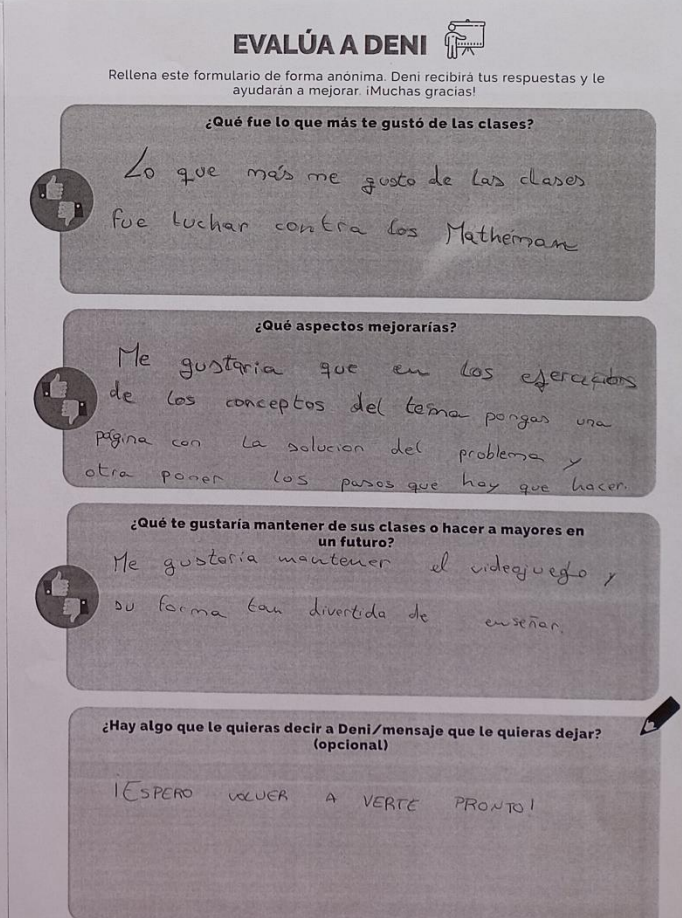 EVALÚA A DENI
Rellena este formulario de forma anónima. Deni recibirá tus respuestas y le
ayudarán a mejorar. ¡Muchas gracias!
¿Qué fue lo que más te gustó de las clases?
Lo que más me gusto de las clases
fue luchar contra los Matheman
¿Qué aspectos mejorarías?
Me gustaria que en los
de los conceptos del tema pongas una
página con la solucion del problema y
otra poner los pasos que hay que hacer.
¿Qué te gustaría mantener de sus clases o hacer a mayores en
un futuro?
Me gustaría mantener el videojuego y
su forma tan divertida de enseñar.
¿Hay algo que le quieras decir a Deni/mensaje que le quieras dejar?
(opcional)
¡ESPERO VOLVER A VERTE PRONTO!